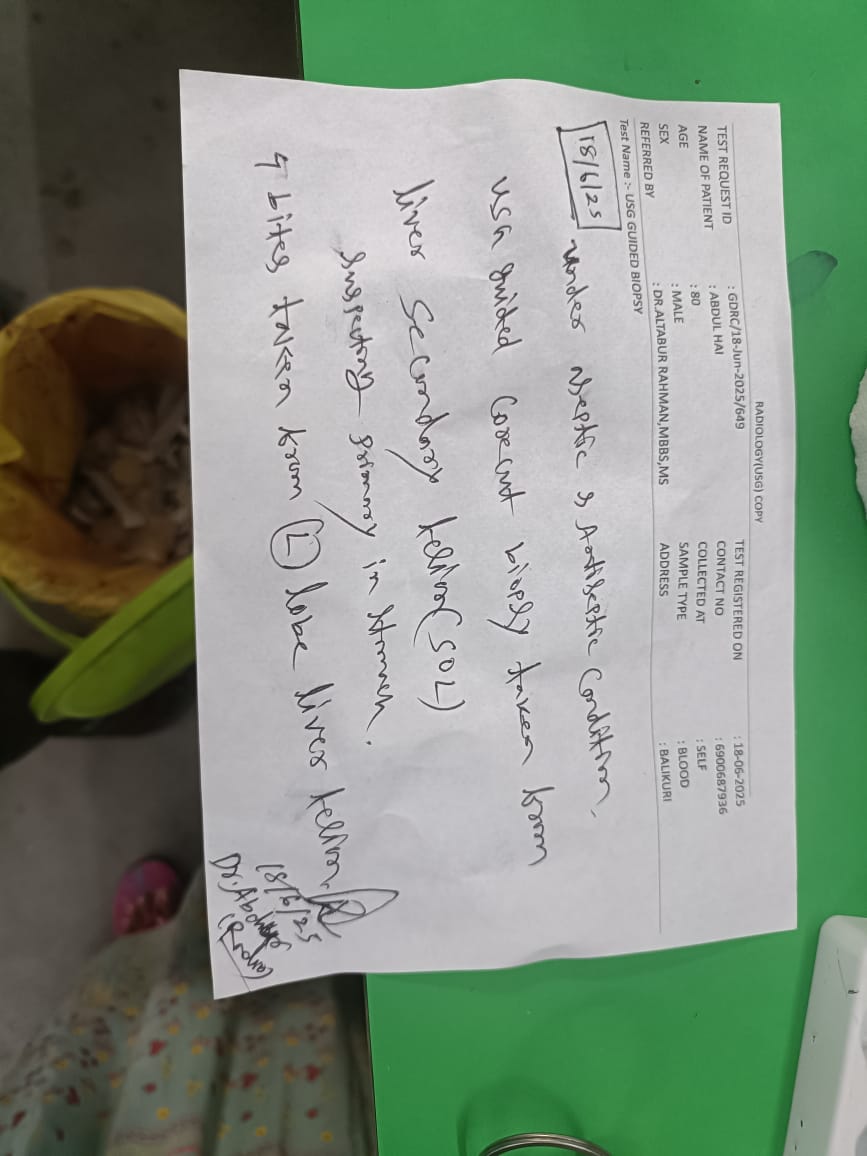 RADIOLOGY(USG) COPY
TEST REQUEST ID : GDRC/18-Jun-2025/649 TEST REGISTERED ON : 18-06-2025
NAME OF PATIENT : ABDUL HAI CONTACT NO : 6900687936
AGE : 80 COLLECTED AT : SELF
SEX : MALE SAMPLE TYPE : BLOOD
REFERRED BY : DR.ALTABUR RAHMAN,MBBS,MS ADDRESS : BALIKURI
Test Name :- USG GUIDED BIOPSY
18/6/25 under aseptic & Antiseptic Condition,
USG guided Corecut biopsy taken from
liver Secondary (SOL)
suspecting primary in stomach.
bites taken from (L) lobe liver
18/6/25